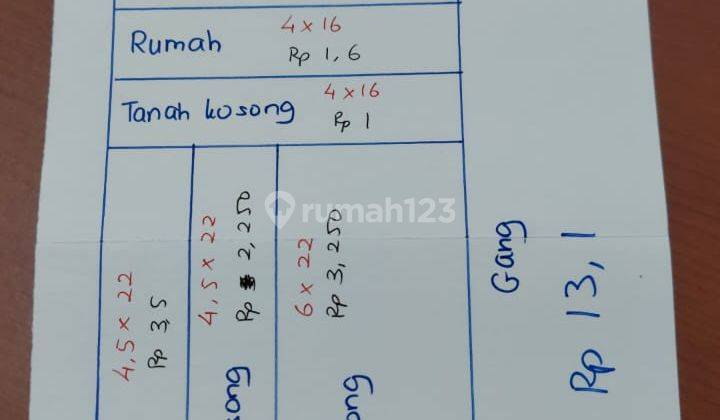 Rumah
4 x 16
Rp 1,6
Tanah kosong
4 x 16
Rp 1
4,5 x 22
Rp 3,5
4,5 x 22
Rp 2,250
6 x 22
Rp 3,250
Gang
Rp 13,1
ong
ong
rumah123